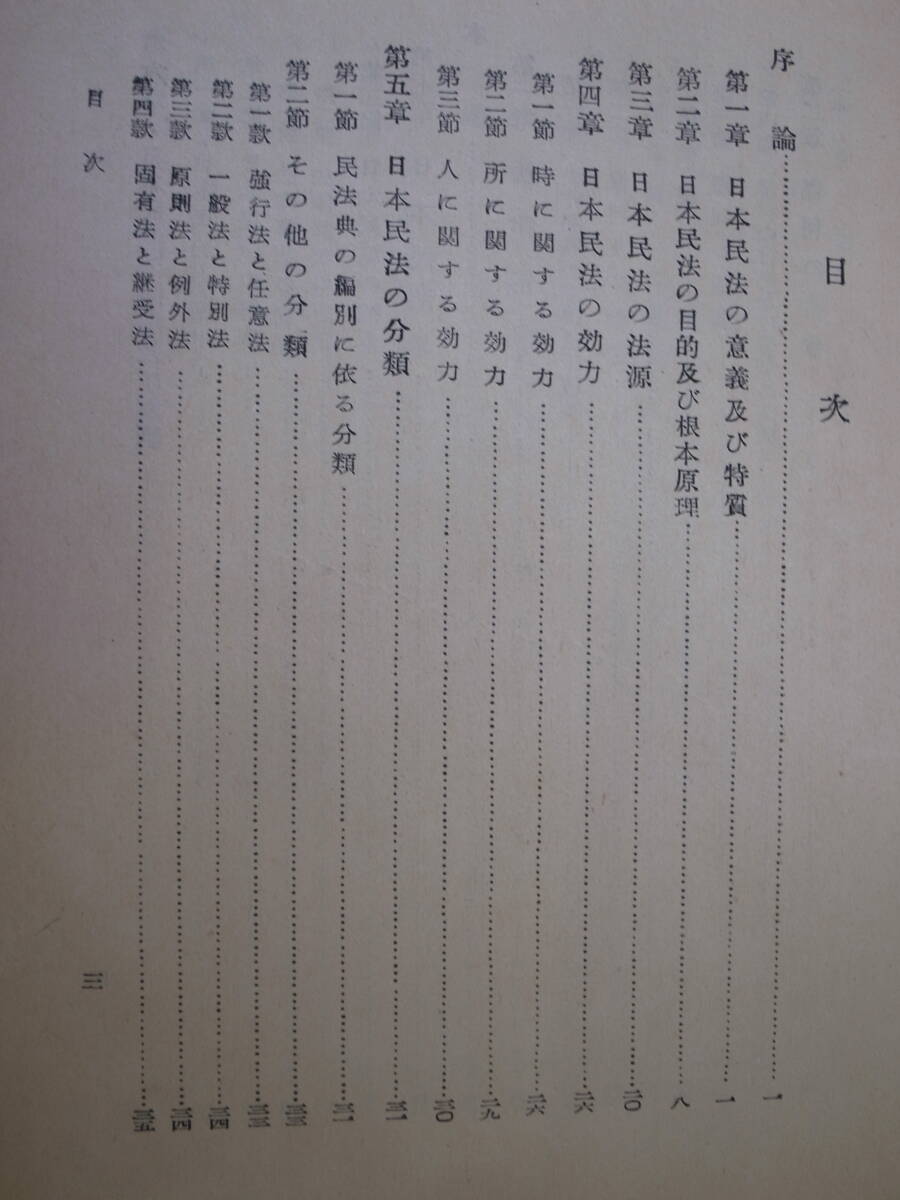 目次
序論……一
第一章 日本民法の意義及び特質……一
第二章 日本民法の目的及び根本原理……八
第三章 日本民法の法源……二〇
第四章 日本民法の効力……二六
第一節 時に関する効力……二六
第二節 所に関する効力……二九
第三節 人に関する効力……三〇
第五章 日本民法の分類……三一
第一節 民法典の編別に依る分類……三一
第二節 その他の分類……三三
第一款 強行法と任意法……三三
第二款 一般法と特別法……三四
第三款 原則法と例外法……三四
第四款 固有法と継受法……三五
目次 三